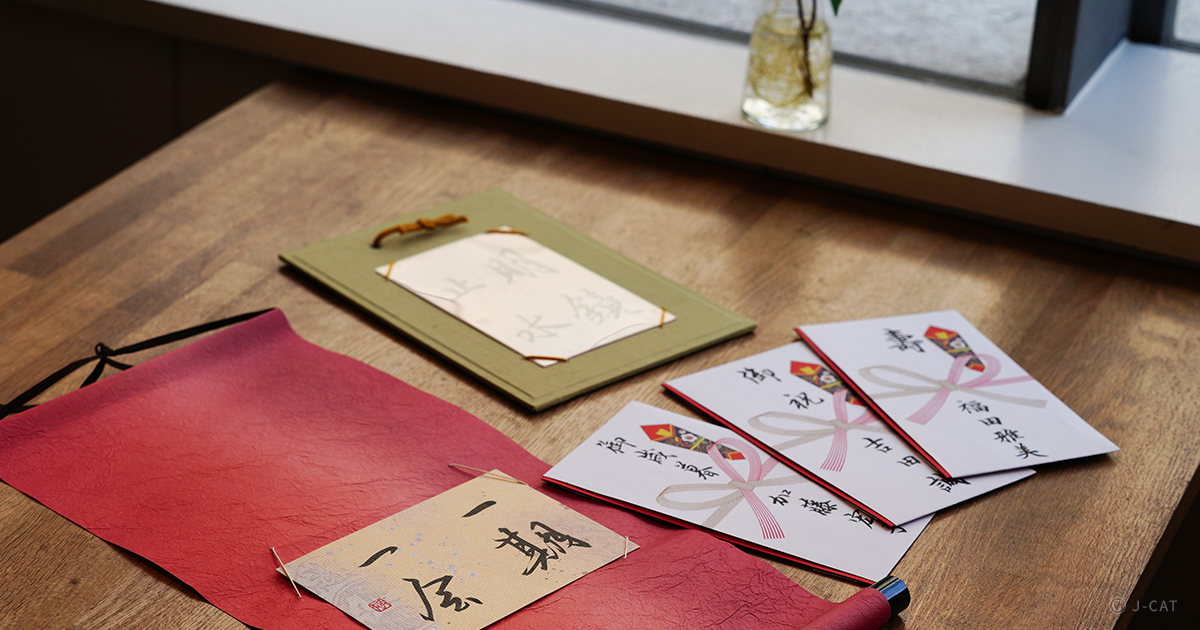 明鏡
止水
壽
福田雅美
御祝
吉田誠
御歳暮
加藤
一期
一会
© J-CAT